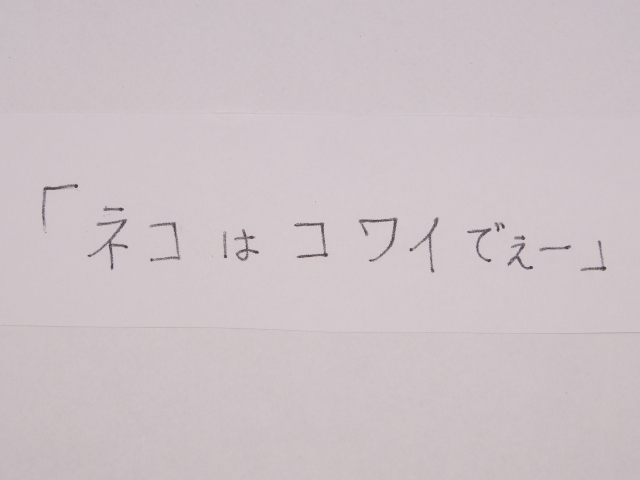 「ネコはコワイでぇー」